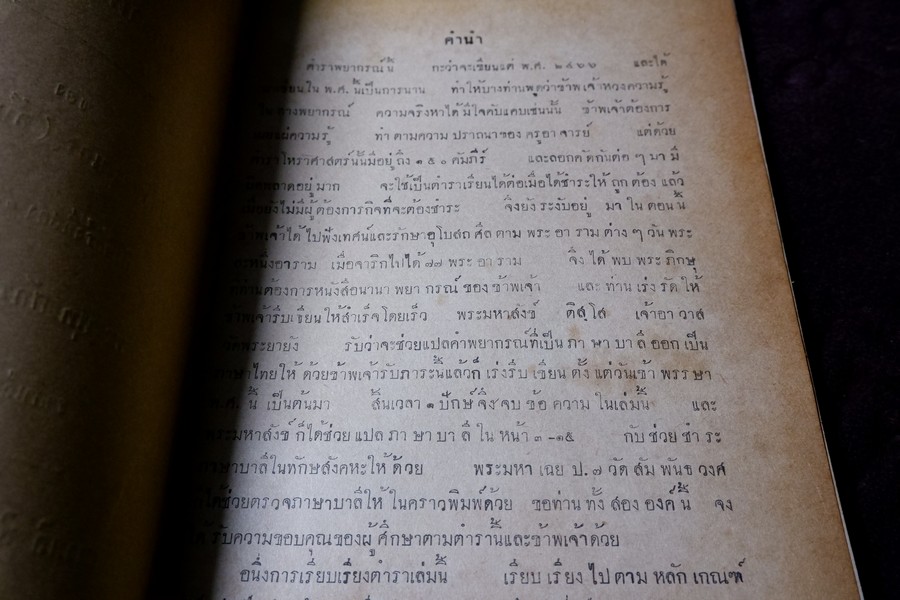 คำนำ
ตำราพยากรณ์นี้ กะว่าจะเขียนแต่ พ.ศ. ๒๔๖๖ และได้
เขียนใน พ.ศ. นี้เป็นการนาน ทำให้บางท่านพูดว่าข้าพเจ้าหวงความรู้
ทางพยากรณ์ ความจริงหาได้มีใจคับแคบเช่นนั้น ข้าพเจ้าต้องการ
เผยแผ่ความรู้ ทำ ตามความ ปราถนาของ ครูอา จารย์ แต่ด้วย
โหราศาสตร์นั้นมีอยู่ถึง ๑๕๐ คัมภีร์ และลอกคัดกันต่อ ๆ มา มี
พลาดอยู่มาก จะใช้เป็นตำราเรียนได้ต่อเมื่อได้ชำระให้ ถูก ต้อง แล้ว
ยังไม่มีผู้ต้องการกิจที่จะต้องชำระ จึงยัง ระงับอยู่ มา ใน ตอน นี้
ข้าพเจ้าได้ ไปฟังเทศน์และรักษาอุโบสถ ศีล ตาม พระ อา ราม ต่าง ๆ วัน พระ
ละหนึ่งอาราม เมื่อจาริกไปได้ ๗๗ พระ อา ราม จึง ได้ พบ พระ ภิกษุ
ท่านต้องการหนังสือนานา พยา กรณ์ ของ ข้าพเจ้า และ ท่าน เร่ง รัด ให้
ข้าพเจ้ารีบเขียน ให้สำเร็จโดยเร็ว พระมหาสังข์ ติสฺโส เจ้าอา วาส
พระยายัง รับว่าจะช่วยแปลคำพยากรณ์ที่เป็น ภา ษา บา ลี ออก เป็น
ภาษาไทยให้ ด้วยข้าพเจ้ารับภาระนี้แล้วก็ เร่งรีบ เขียน ตั้ง แต่วันเข้า พรรษา
พ.ศ. นี้ เป็นต้นมา สิ้นเวลา ๑ ปักษ์ จึง จบ ข้อ ความ ในเล่มนี้ และ
พระมหาสังข์ ก็ได้ช่วย แปล ภา ษา บา ลี ใน หน้า ๓ -๑๕ กับ ช่วย ชำ ระ
ภาษาบาลีในทักษสังคหะให้ ด้วย พระมหา เฉย ป. ๗ วัด สัม พันธ วงศ์
ได้ช่วยตรวจภาษาบาลีให้ ในคราวพิมพ์ด้วย ขอท่าน ทั้ง สอง องค์ นี้ จง
ได้ รับความขอบคุณของผู้ ศึกษาตามตำรานี้และข้าพเจ้าด้วย
อนึ่งการเรียบเรียงตำราเล่มนี้ เรียบ เรียง ไป ตาม หลัก เกณฑ์